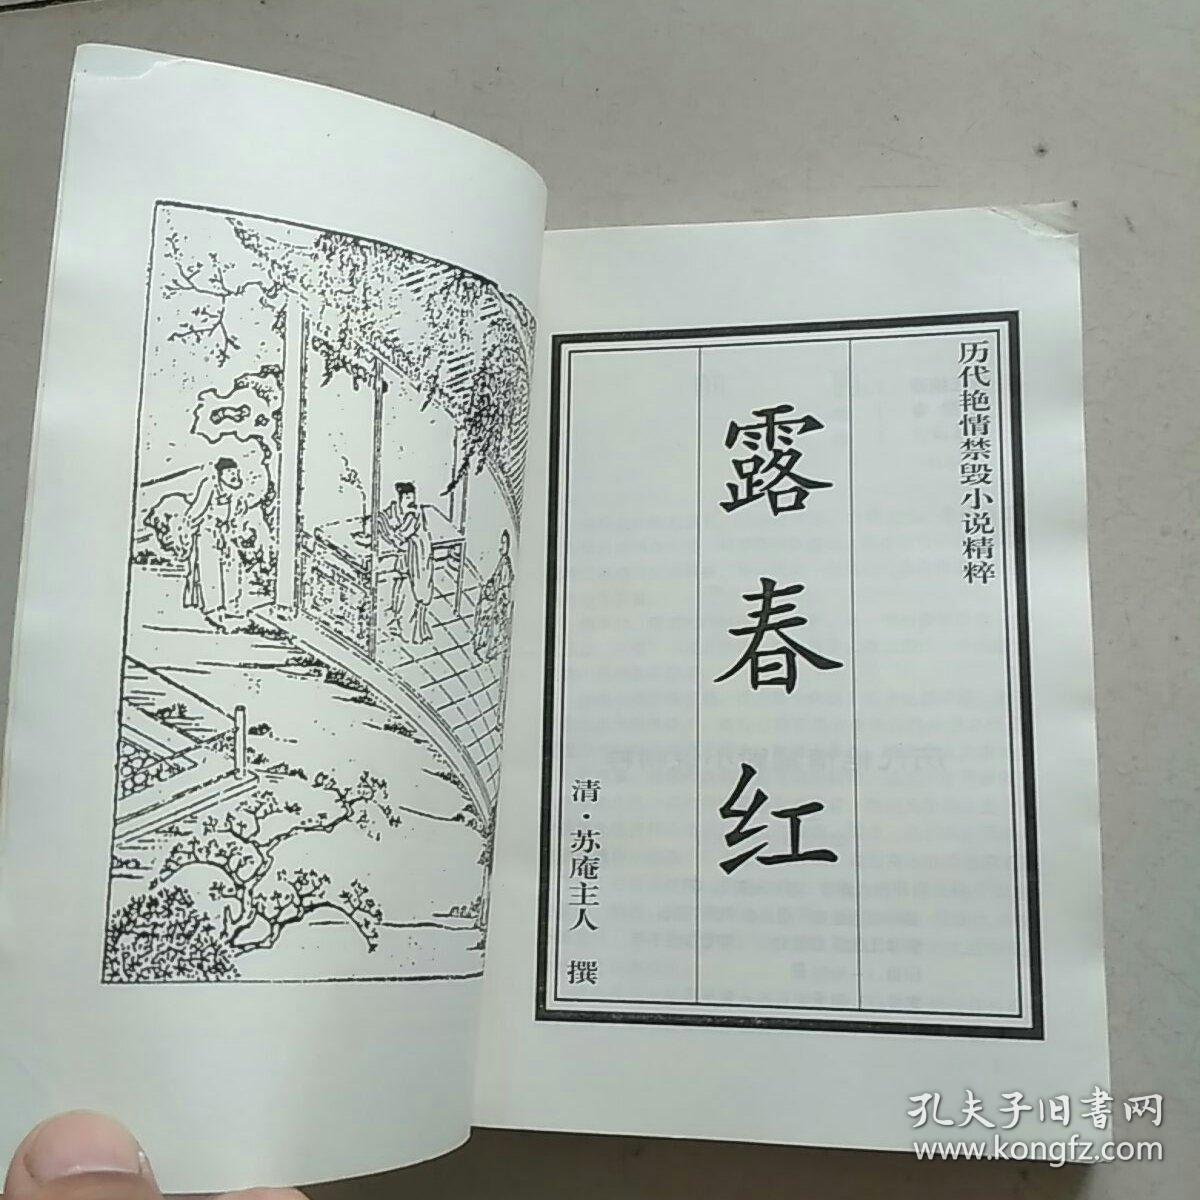 历代艳情禁毁小说精粹
露春红
清·苏庵主人 撰
孔夫子旧書网
www.kongfz.com